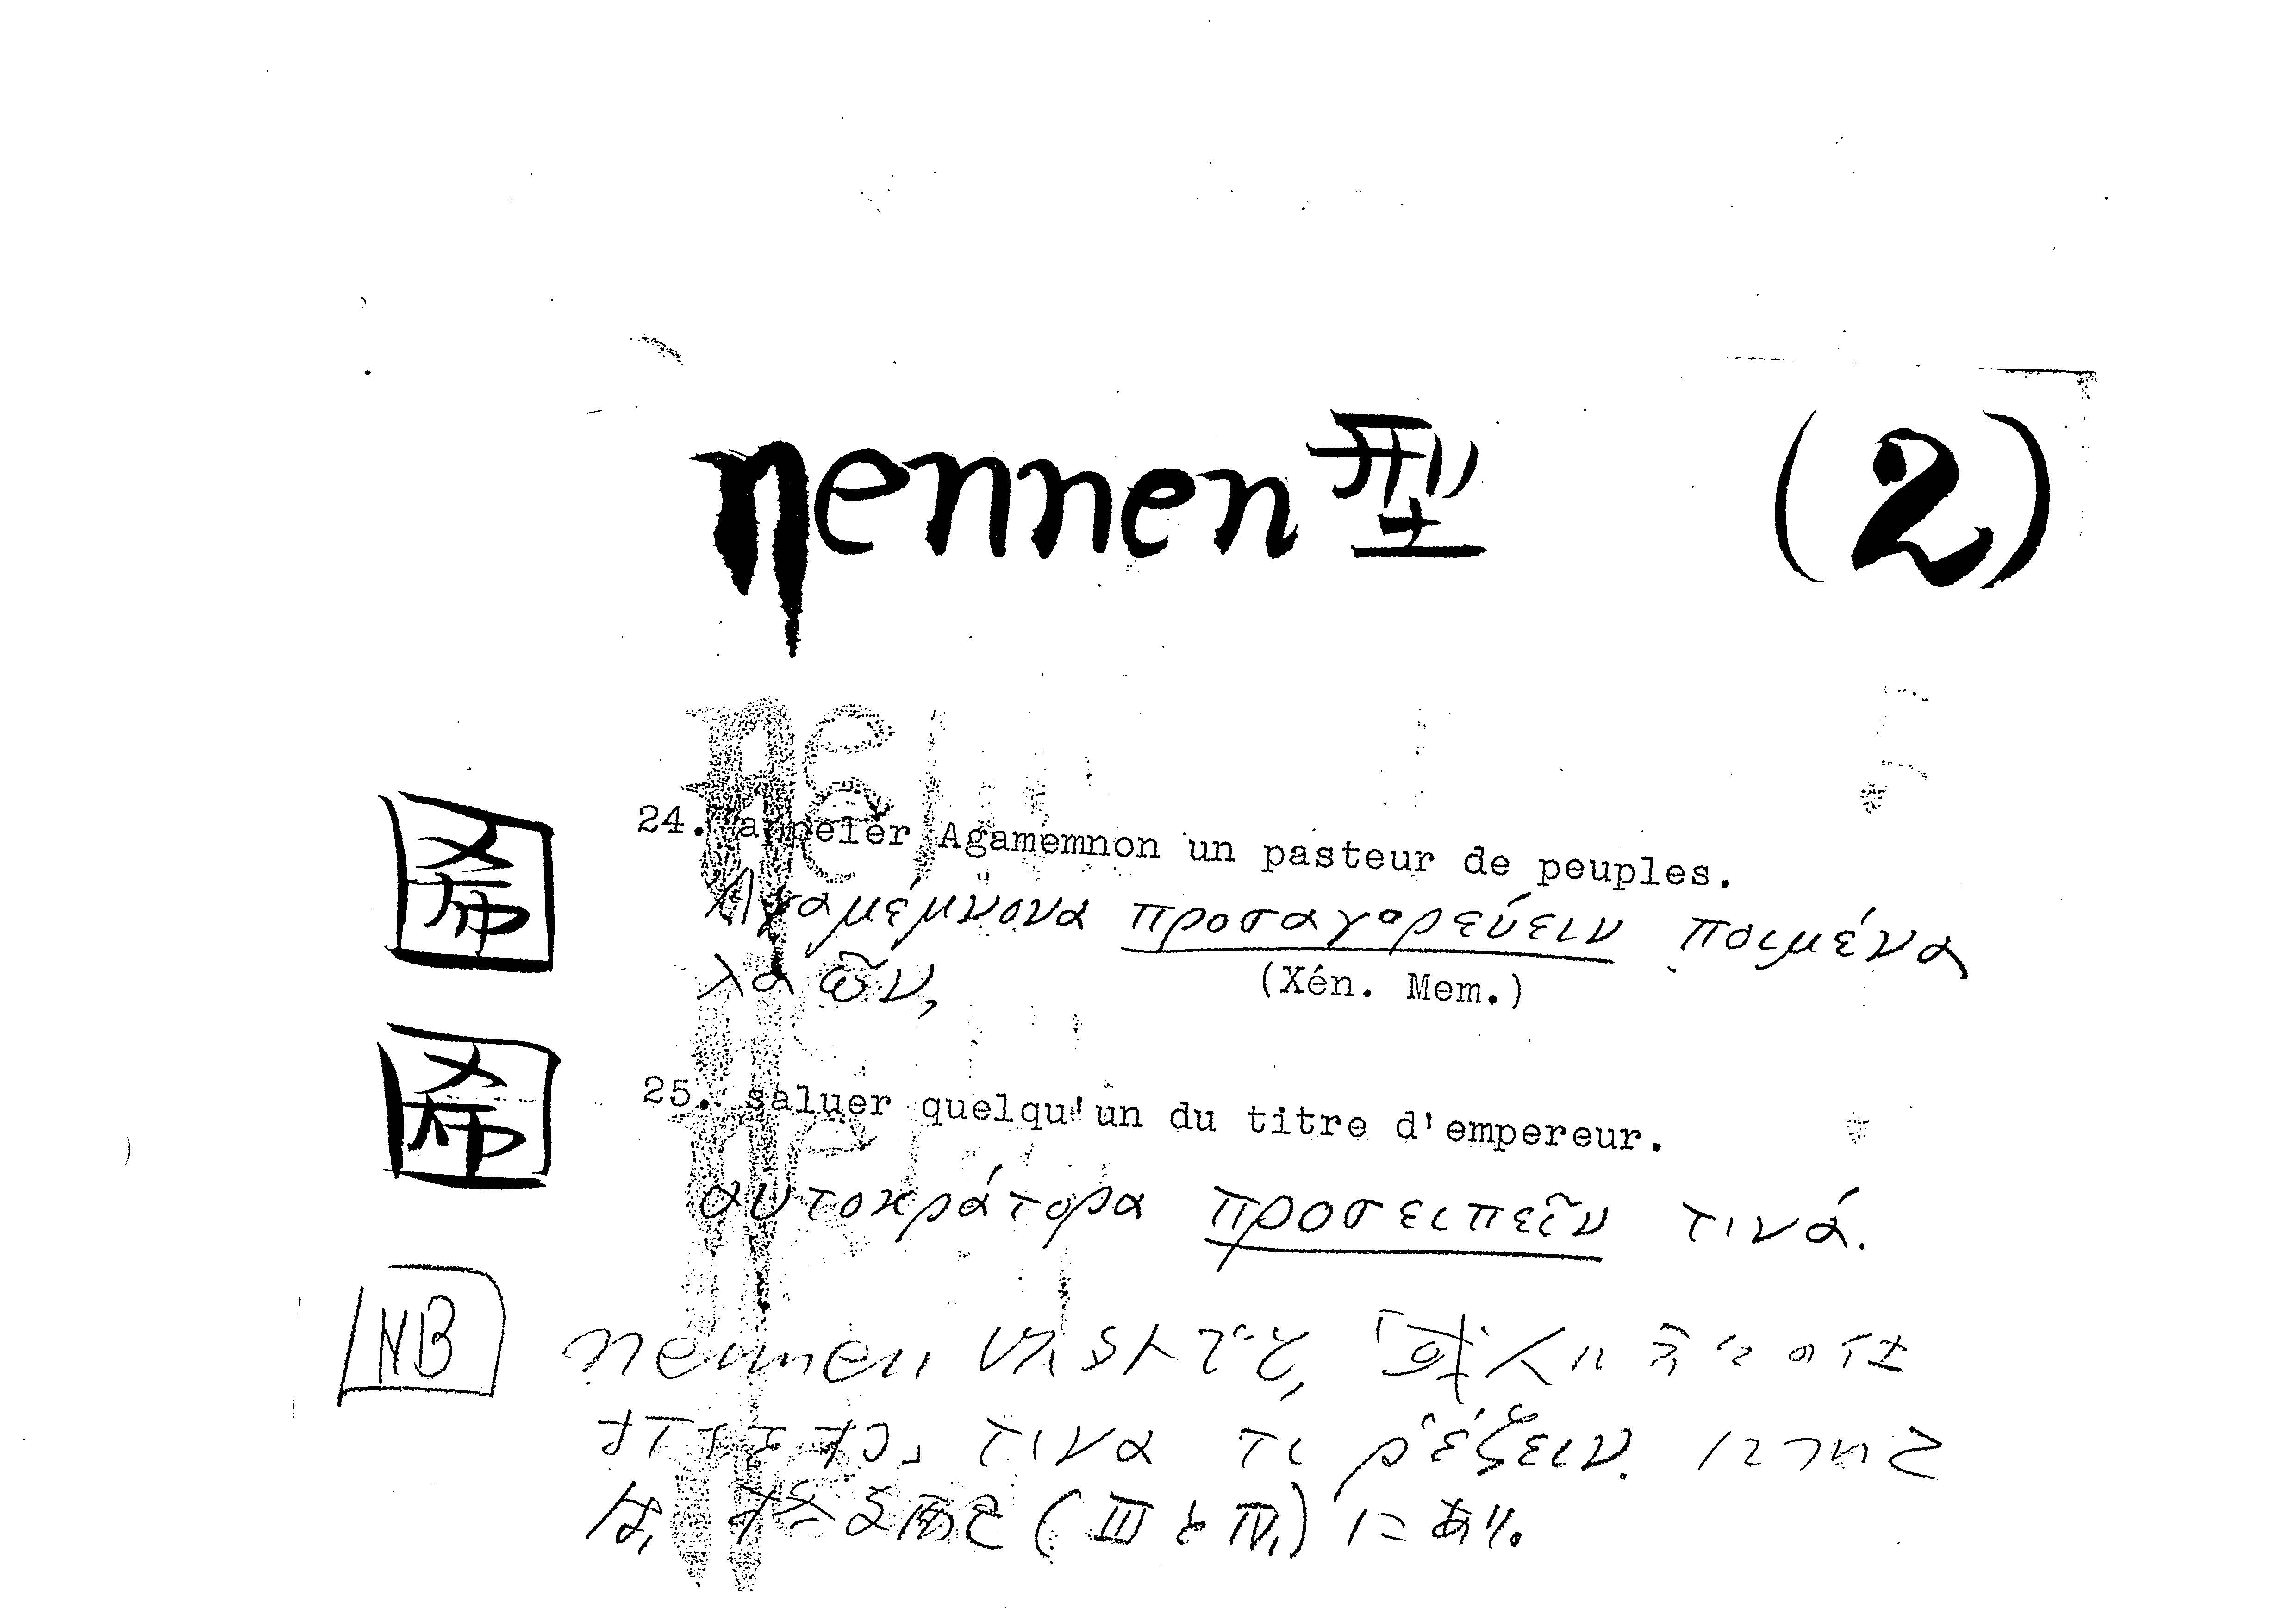 nennen型 (2)
希
24. appeler Agamemnon un pasteur de peuples.
Ἀγαμέμνονα προσαγορεύειν ποιμένα
λαῶν,
(Xén. Mem.)
希
25. saluer quelqu'un du titre d'empereur.
αυτοκράτορα προσειπεῖν τινά.
NB
nennen
τινα τι ῥέζειν.
(III と IV,) にあり。